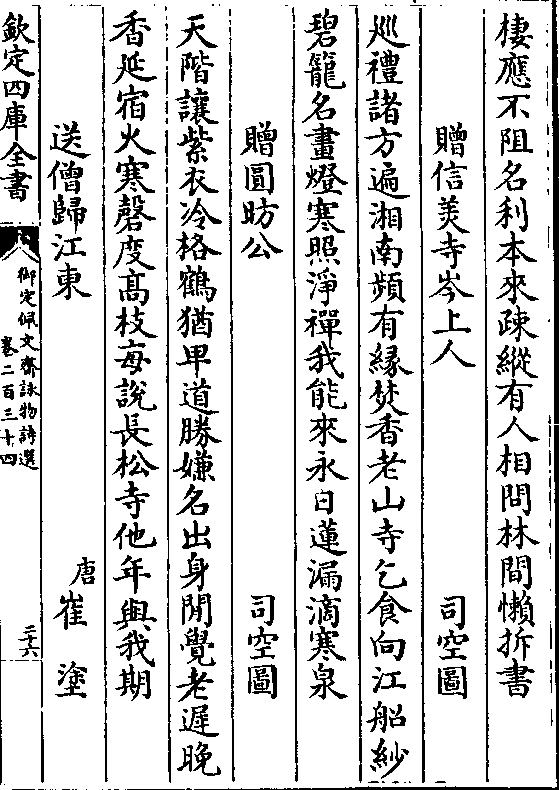 棲應不阻名利本來疎縱有人相問林間懶拆書
贈信美寺岑上人　司空圖
巡禮諸方遍湘南頻有緣焚香老山寺乞食向江船紗
碧籠名畫燈寒照淨禪我能來永日蓮漏滴寒泉
贈圓昉公　司空圖
天階讓紫衣冷格鶴猶卑道勝嫌名出身閒覺老遲晚
香延宿火寒磬度髙枝每說長松寺他年與我期
送僧歸江東　唐崔塗
欽定四庫全書
御定佩文齋詠物詩選
卷二百三十四
三十六